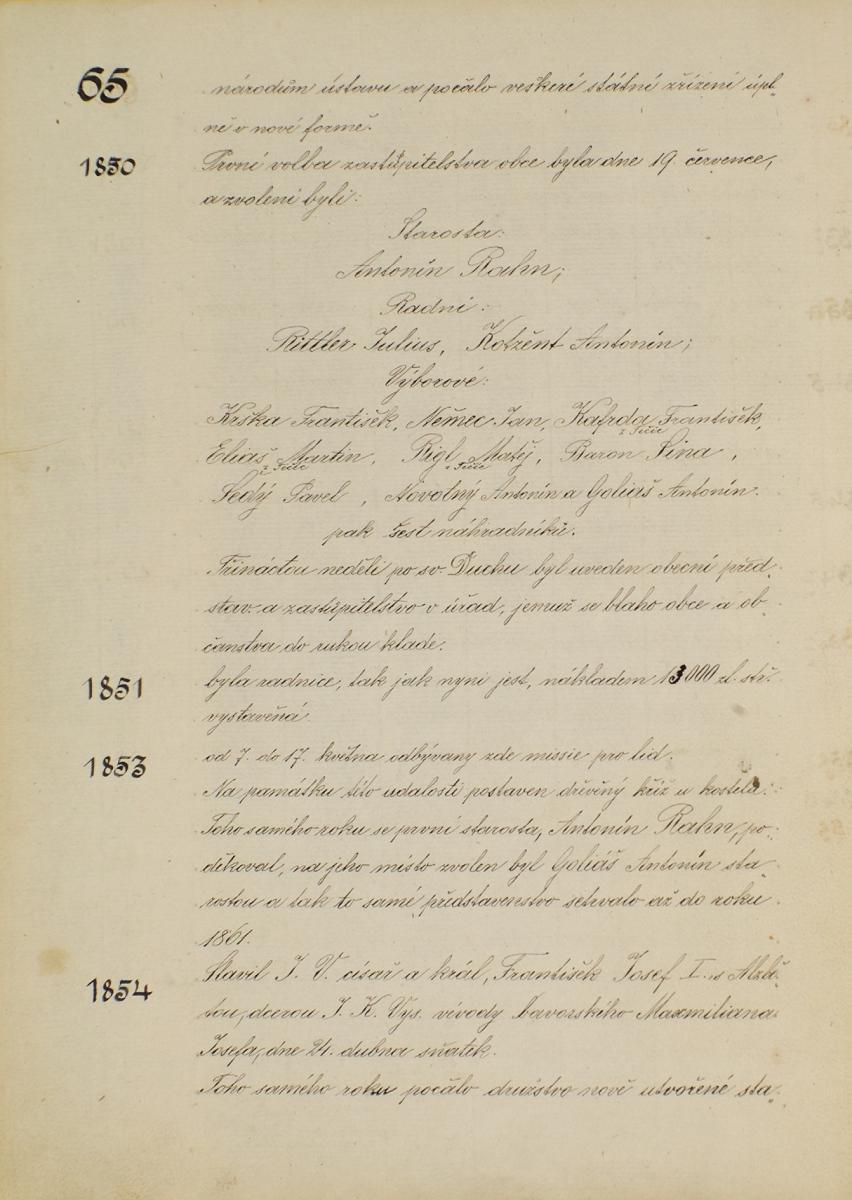 65
národům ústavu a počalo veškeré státní zřízení úpl-
ně v nové formě.
1850
První volba zastupitelstva obce byla dne 19. července,
a zvoleni byli:
Starosta:
Antonín Rahn;
Radní:
Rittler Julius, Kotzent Antonín;
Výborové:
Krška František, Němec Jan, Kafrda František,
Eliáš Martin, Rigl Matěj, Baron Sina,
Šedý Pavel, Novotný Antonín a Goliáš Antonín.
pak šest náhradníků.
Třináctou neděli po sv. Duchu byl uveden obecní před-
stav. a zastupitelstvo v úřad, jemuž se blaho obce a ob-
čanstva do rukou klade.
1851
byla radnice, tak jak nyni jest, nákladem 13000 zl. stř.
vystavěná.
1853
od 7. do 17. května odbývany zde missie pro lid.
Na památku této udalosti postaven dřevěný kříž u kostela.
Toho samého roku se první starosta, Antonín Rahn, po-
děkoval, na jeho místo zvolen byl Goliáš Antonín sta-
rostou a tak to samé představenstvo setrvalo až do roku
1861.
1854
Slavil J. V. císař a král, František Josef I. s Alžbě-
tou, dcerou J. K. Vys. vévody bavorského Maxmiliana
Josefa, dne 24. dubna sňatek.
Toho samého roku počalo družstvo nově utvořené sta-